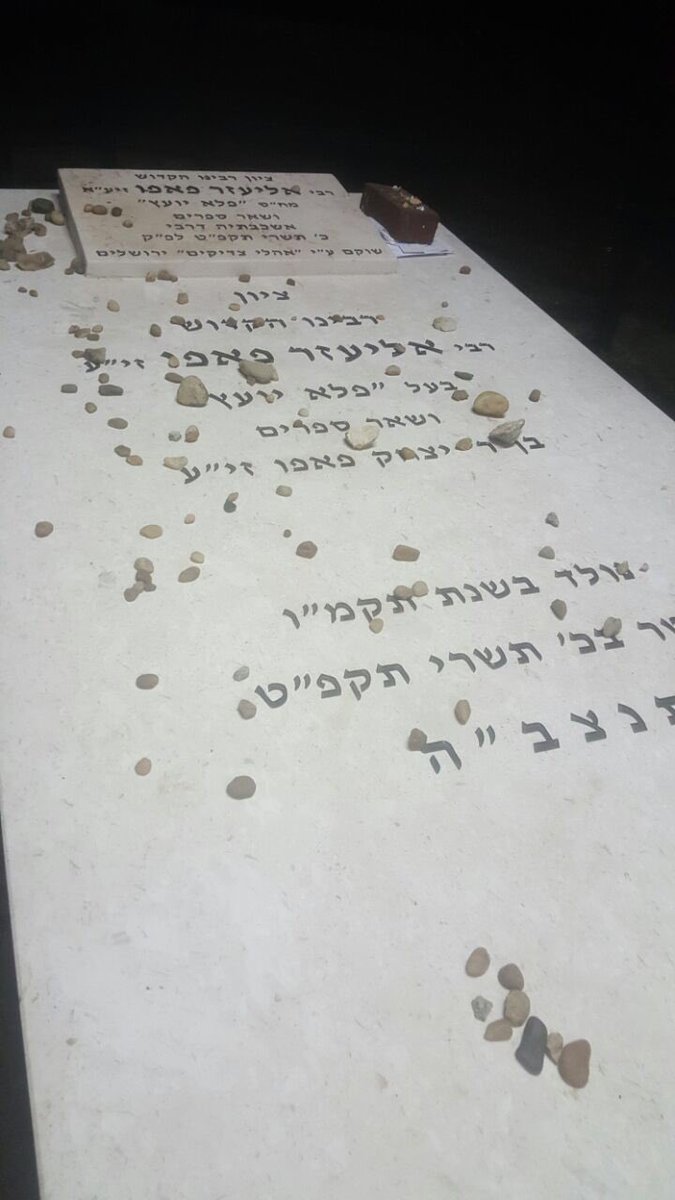 ציון רבינו הקדוש
רבי אליעזר פאפו זיע״א
מח״ס ״פלא יועץ״
ושאר ספרים
אשכבתיה דרבי
כ׳ תשרי תקפ״ט לפ״ק
שוקם ע״י ״אהלי צדיקים״ ירושלים
ציון
רבינו הקדוש
רבי אליעזר פאפו זי״ע
בעל ״פלא יועץ
ושאר ספרים
בן ר יצחק פאפו זי״ע
נולד בשנת תקמ״ו
בכ׳ תשרי תקפ״ט
תנצב״ה